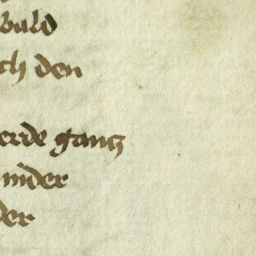 bald
ch den
erde gantz
under
der